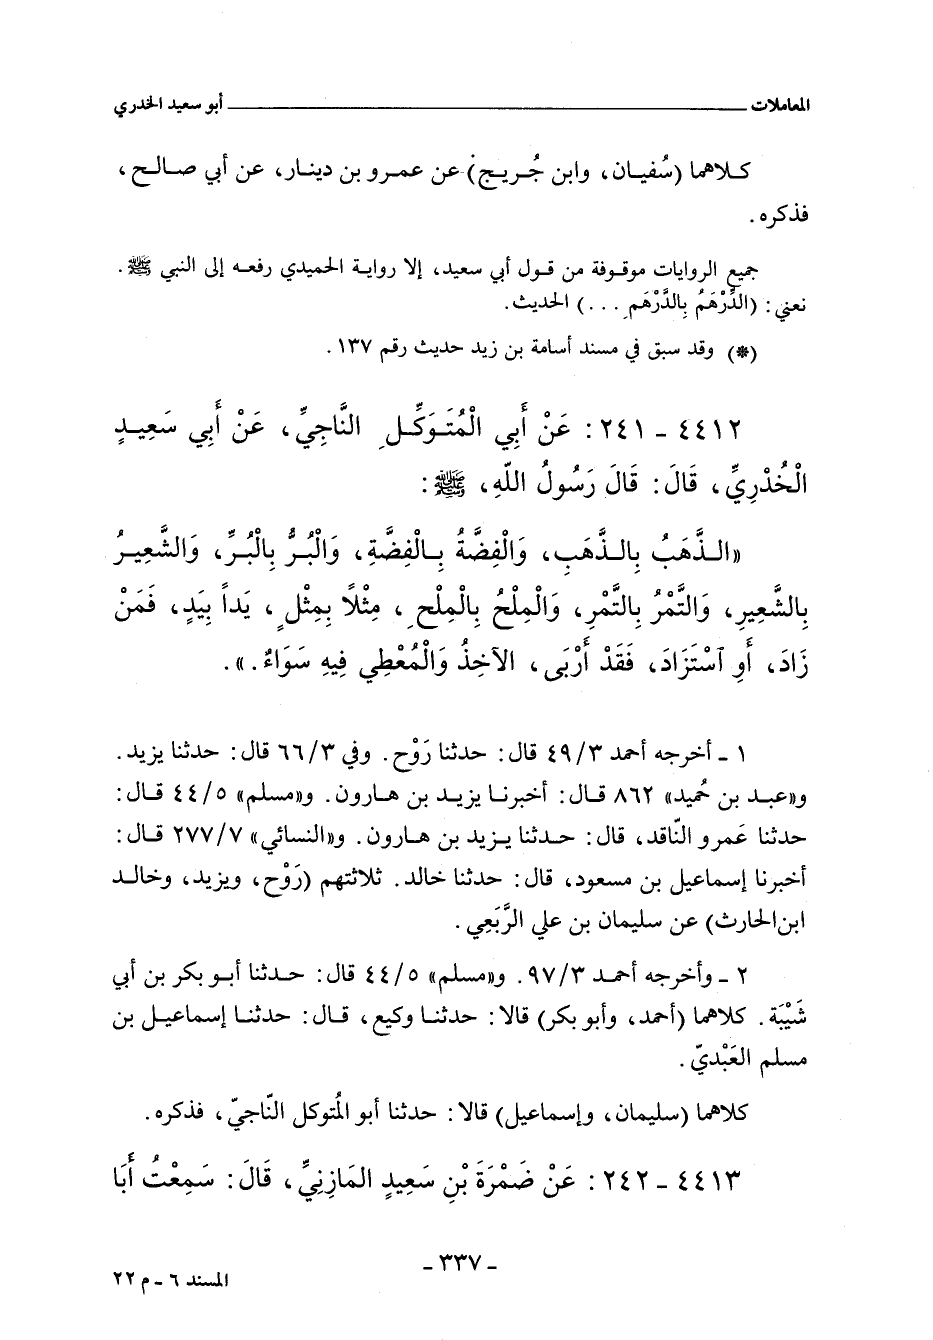 المعاملات ــــــــــــــــــــــــــــــــــــــــ أبو سعيد الخدري
كلاهما (سُفيان، وابن جُريج) عن عمرو بن دينار، عن أبي صالح،
فذكره.
جميع الروايات موقوفة من قول أبي سعيد، إلا رواية الحميدي رفعه إلى النبي ﷺ.
نعني: (الدِّرْهَمُ بِالدَّرْهَمِ...) الحديث.
(*) وقد سبق في مسند أسامة بن زيد حديث رقم ١٣٧.
٤٤١٢ - ٢٤١: عَنْ أَبِي الْمُتَوَكِّلِ النَّاجِيِّ، عَنْ أَبِي سَعِيدٍ
الْخُدْرِيِّ، قَالَ: قَالَ رَسُولُ اللّهِ، ﷺ:
«الذَّهَبُ بِالذَّهَبِ، وَالْفِضَّةُ بِالْفِضَّةِ، وَالْبُرُّ بِالْبُرِّ، وَالشَّعِيرُ
بِالشَّعِيرِ، وَالتَّمْرُ بِالتَّمْرِ، وَالْمِلْحُ بِالْمِلْحِ، مِثْلًا بِمِثْلٍ، يَداً بِيَدٍ، فَمَنْ
زَادَ، أَوِ ٱسْتَزَادَ، فَقَدْ أَرْبَى، الآخِذُ وَالْمُعْطِي فِيهِ سَوَاءٌ.».
١ - أخرجه أحمد ٤٩/٣ قال: حدثنا رَوْح. وفي ٦٦/٣ قال: حدثنا يزيد.
و«عبد بن حُميد» ٨٦٢ قال: أخبرنا يزيد بن هارون. و«مسلم» ٤٤/٥ قال:
حدثنا عَمرو النّاقد، قال: حدثنا يزيد بن هارون. و«النسائي» ٢٧٧/٧ قال:
أخبرنا إسماعيل بن مسعود، قال: حدثنا خالد. ثلاثتهم (رَوْح، ويزيد، وخالد
ابن الحارث) عن سليمان بن علي الرَّبَعِي.
٢ - وأخرجه أحمد ٩٧/٣. و«مسلم» ٤٤/٥ قال: حدثنا أبو بكر بن أبي
شَيْبَة. كلاهما (أحمد، وأبو بكر) قالا: حدثنا وكيع، قال: حدثنا إسماعيل بن
مسلم العَبْديّ.
كلاهما (سليمان، وإسماعيل) قالا: حدثنا أبو المُتوكل النّاجيّ، فذكره.
٤٤١٣ - ٢٤٢: عَنْ ضَمْرَةَ بْنِ سَعِيدٍ المَازِنِيِّ، قَالَ: سَمِعْتُ أَبَا
- ٣٣٧ -
المسند ٦ - م ٢٢